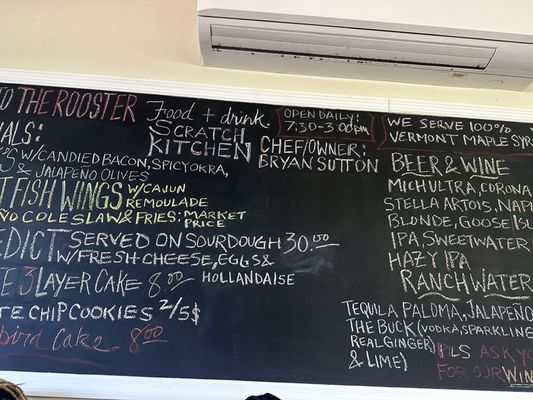 THE ROOSTER
Food + drink
SCRATCH
KITCHEN
OPEN DAILY:
7:30-3:00pm
CHEF/OWNER:
BRYAN SUTTON
WE SERVE 100%
VERMONT MAPLE SYR
IALS:
W/CANDIED BACON, SPICY OKRA,
& JALAPENO OLIVES
TFISH WINGS W/CAJUN
REMOULADE
NO COLESLAW & FRIES: MARKET
PRICE
EDICT SERVED ON SOURDOUGH 30.00
W/FRESH CHEESE, EGGS &
HOLLANDAISE
E 3 LAYER CAKE 8.00
TE CHIP COOKIES 2/5$
bird Cake 8.00
BEER & WINE
MICH ULTRA, CORONA
STELLA ARTOIS, NAPL
BLONDE, GOOSE ISL
IPA, SWEETWATER
HAZY IPA
RANCH WATER
TEQUILA PALOMA, JALAPEÑO
THE BUCK (VODKA, SPARKLING
REAL GINGER,
& LIME)
PLS ASK YO
FOR OUR WIN